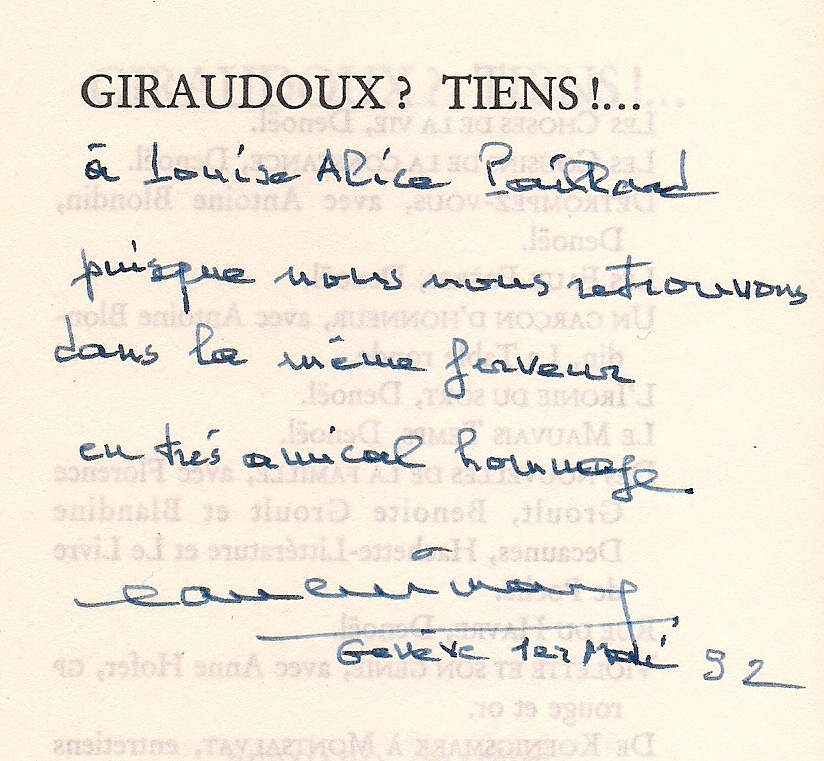 GIRAUDOUX ? TIENS !...
à Louise Alice Paillard
puisque nous nous retrouvons
dans la même ferveur
en très amical hommage
Genève 1er Mai 92